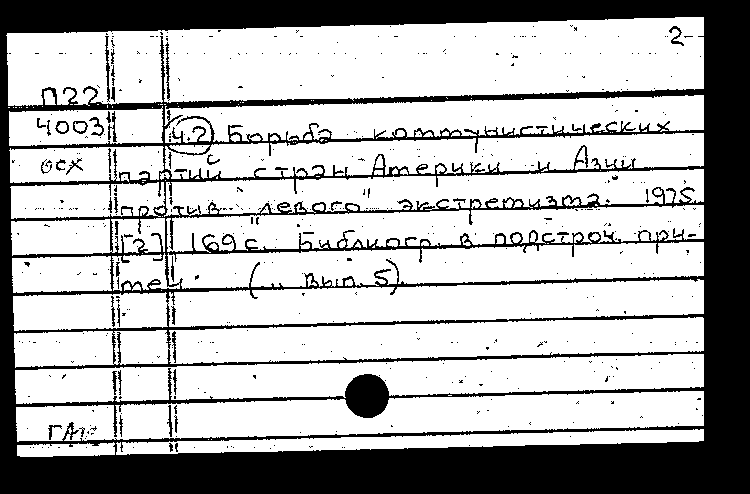 2-
П22
4003 Ч.2 Борьба коммунистических
осх партий стран Америки и Азии
против "левого" экстремизма. 1975.
[2] 169 с. Библиогр. в подстроч. при-
меч. (" Вып. 5).